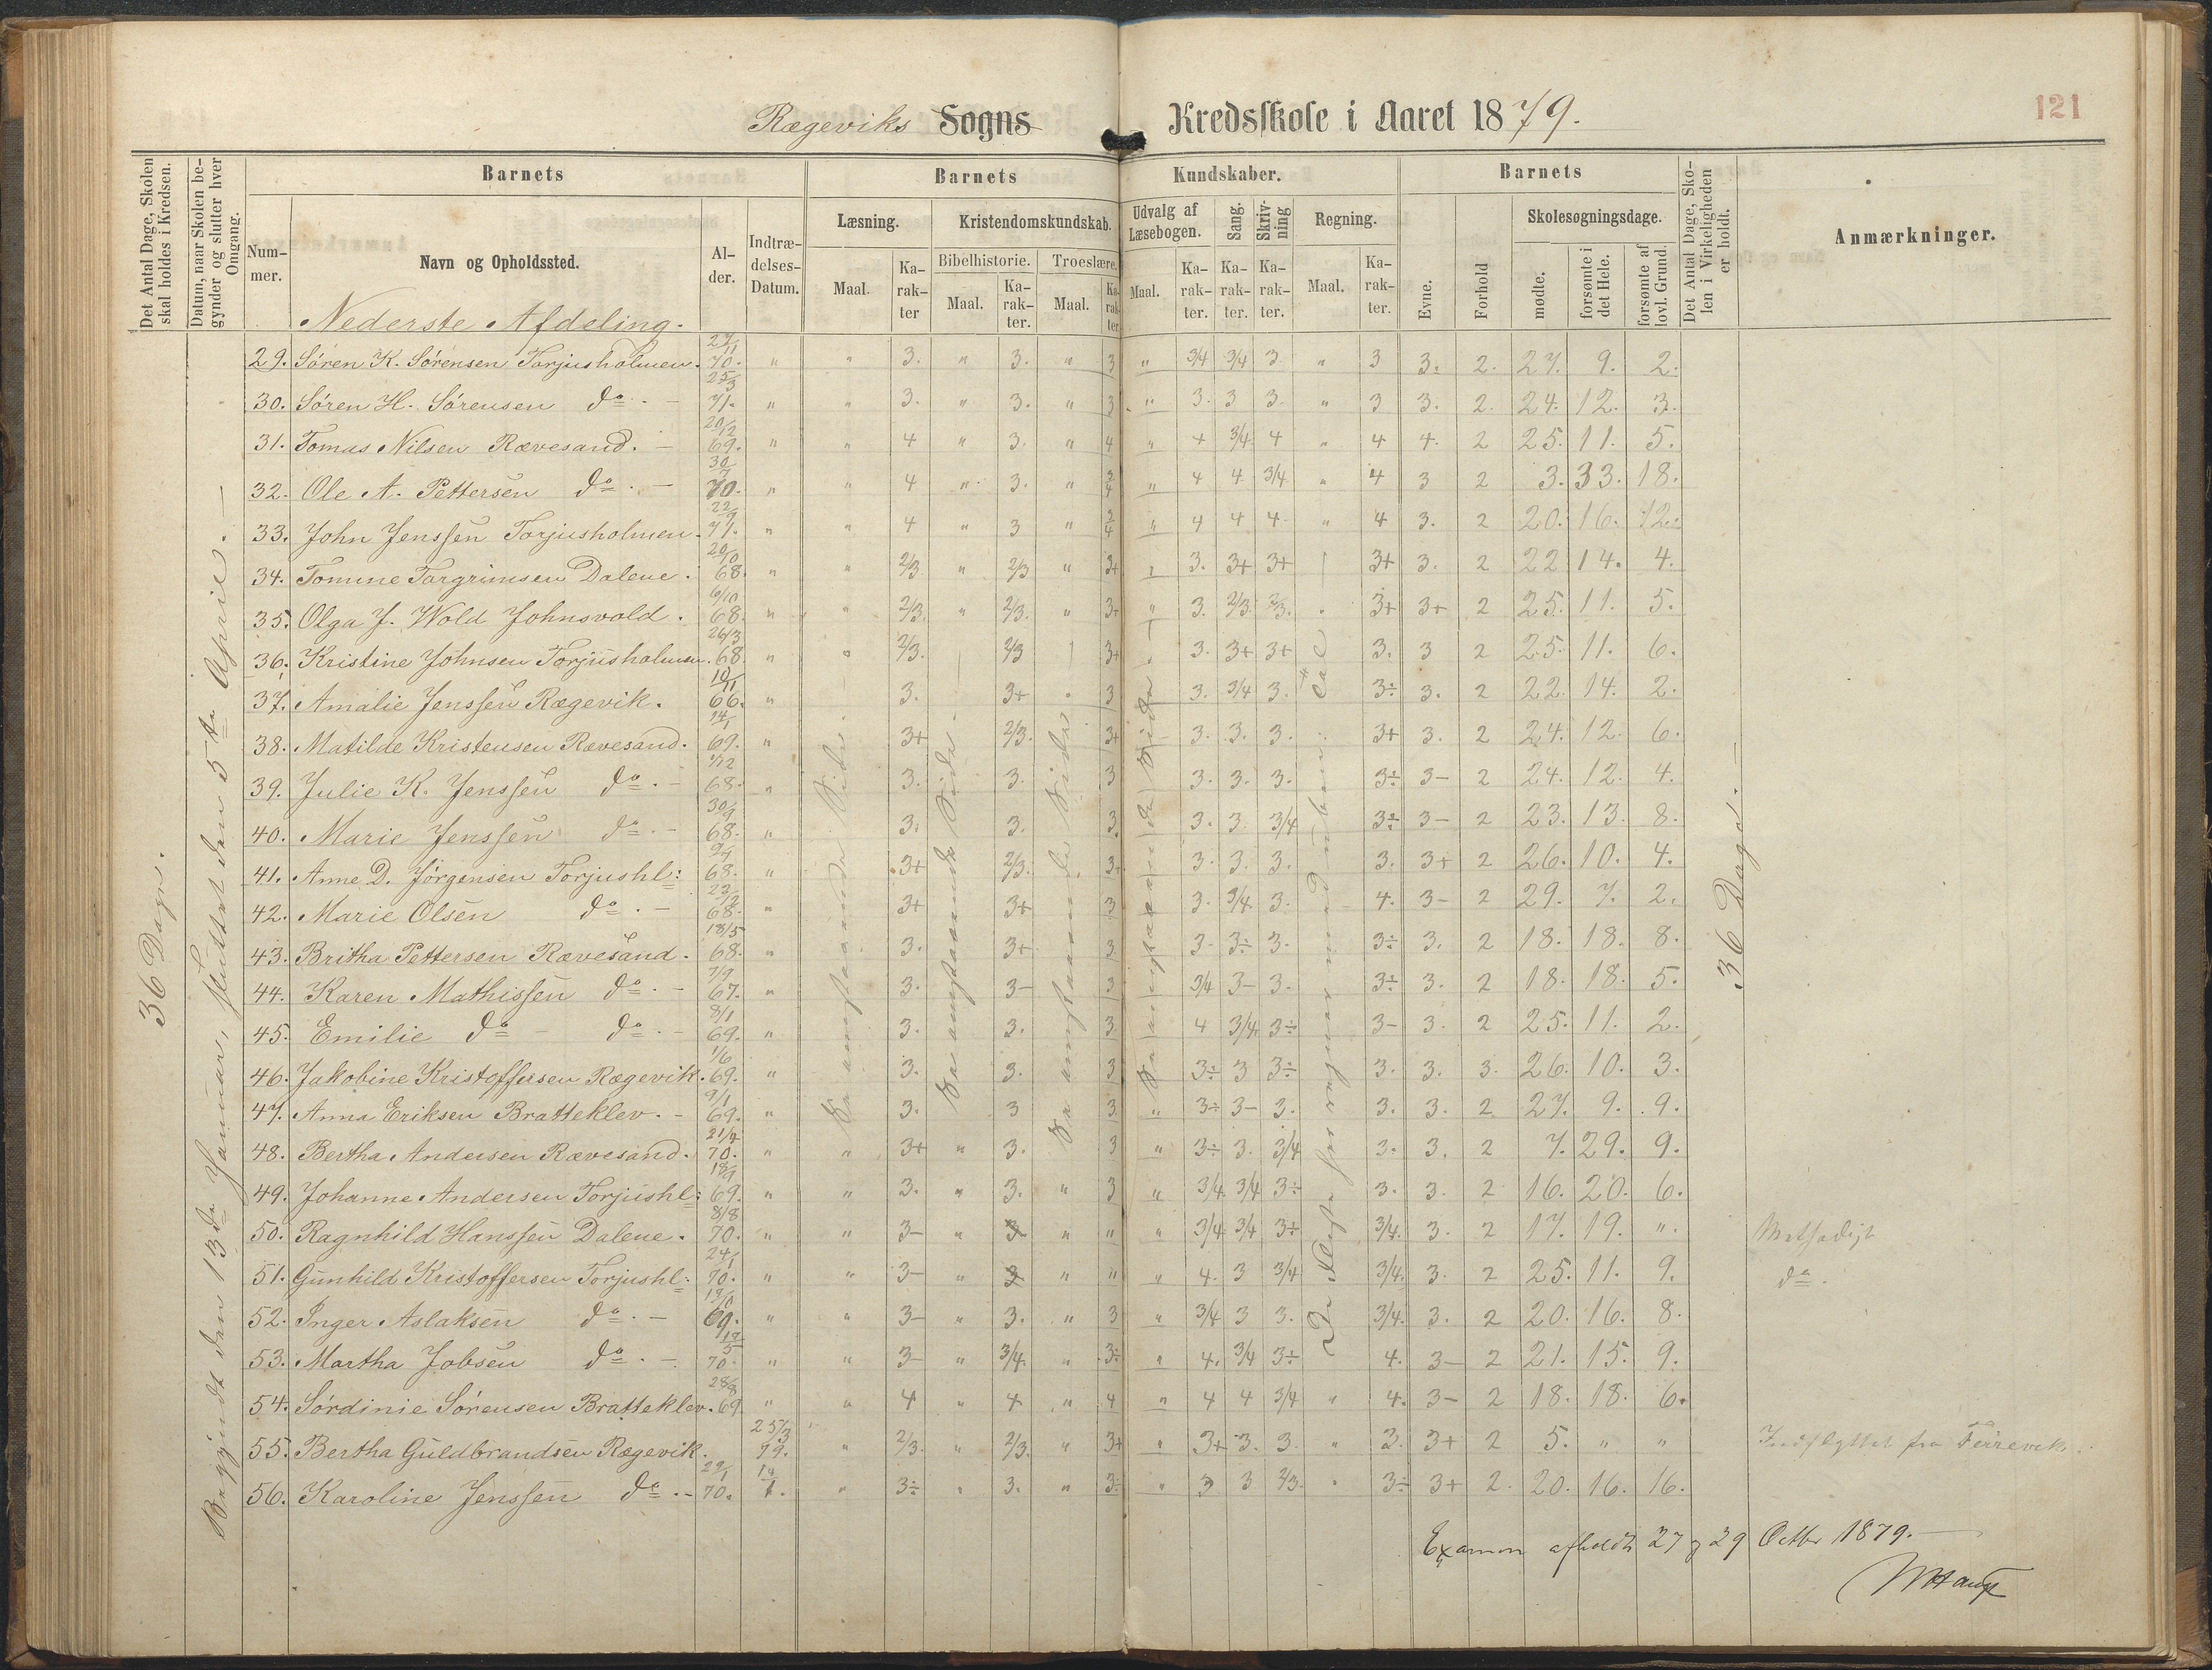 121
Rægeviks Sogns Kredsskole i Aaret 1879.
Det Antal Dage, Skolen skal holdes i Kredsen.
Datum, naar Skolen begynder og slutter hver Omgang.
Barnets
Barnets Kundskaber.
Barnets
Det Antal Dage, Skolen i Virkeligheden er holdt.
Anmærkninger.
Nummer.
Navn og Opholdssted.
Alder.
Indtrædelses-Datum.
Læsning.
Kristendomskundskab.
Udvalg af Læsebogen.
Sang.
Skrivning
Regning.
Evne.
Forhold
Skolesøgningsdage.
Bibelhistorie.
Troeslære.
Maal.
Karakter
Maal.
Karakter.
Maal.
Karakter
Maal.
Karakter.
Karakter.
Karakter.
Maal.
Karakter.
mødte.
forsømte i det Hele.
forsømte af lovl. Grund.
Nederste Afdeling.
36 Dage.
Begyndt den 13de Januar, sluttet den 5te April.
36 Dage.
29. Sören K. Sörensen Torjusholmen. 27/11 70. " " 3. " 3. " 3 " 3/4 3/4 3 " 3 3. 2. 27. 9. 2.
30. Sören H. Sörensen do. - 25/3 71. " " 3. " 3. " 3 " 3. 3 3. " 3 3. 2. 24. 12. 3.
31. Tomas Nilsen Rævesand. - 20/12 69. " " 4 " 3. " 4 " 4 3/4 4 " 4 4. 2 25. 11. 5.
32. Ole A. Pettersen do. - 30/7 70. " " 4 " 3. " 3/4 " 4 4 3/4 " 4 3 2 3. 33. 18.
33. John Jenssen Torjusholmen. 22/9 71. " " 4 " 3 " 3/4 " 4 4 4 " 4 3. 2 20. 16. 12.
34. Tomine Torgrimsen Dalene. 20/10 68. " " 2/3 " 2/3 " 3+ " 3. 3+ 3+ 3+ 3. 2 22 14. 4.
35. Olga J. Wold Johnsvold. 6/10 68. " " 2/3. " 2/3. " 3+ " 3. 2/3. 2/3. " 3+ 3+ 2 25. 11. 5.
36. Kristine Johnsen Torjusholmen. 26/3 68. " " 2/3. 2/3 3+ 3. 3+ 3+ 3. 3 2 25. 11. 6.
37. Amalie Jenssen Rægevik. 10/11 66. " 3. 3+ 3 3. 3/4 3. 3÷ 3. 2 22. 14. 2.
38. Matilde Kristensen Rævesand. 14/1 69. " 3+ 2/3. 3+ 3. 3. 3. 3+ 3. 2 24. 12. 6.
39. Julie K. Jenssen do. - 1/12 68. " 3. 3. 3 3. 3. 3. 3÷ 3- 2 24. 12. 4.
40. Marie Jenssen do. - 30/9 68. " 3. 3. 3. 3. 3 3/4 3÷ 3- 2 23. 13. 8.
41. Anne D. Jörgensen Torjushl: 9/7 68. " 3+ 2/3. 3+ 3. 3. 3. 3. 3+ 2 26. 10. 4.
42. Marie Olsen do. - 23/12 68. " 3+ 3+ 3 3. 3/4 3. 4. 3- 2 29. 7. 2.
43. Britha Pettersen Rævesand. 18/5 68. " 3. 3+ 3 3. 3÷ 3. 3÷ 3. 2 18. 18. 8.
44. Karen Mathissen do. - 7/9 67. " 3. 3- 3 3/4 3- 3. 3÷ 3. 2 18. 18. 5.
45. Emilie do - do. - 8/1 69. " 3. 3. 3 4 3/4 3÷ 3- 3. 2 25. 11. 2.
46. Jakobine Kristoffersen Rægevik. 1/6 69. " 3. 3. 3 3÷ 3 3÷ 3. 3. 3. 26. 10. 3.
47. Anna Eriksen Bratteklev. - 9/1 69. " 3. 3 3 " 3÷ 3- 3. 3. 3. 2 27. 9. 9.
48. Bertha Andersen Rævesand. 21/4 70. " " 3+ " 3. 3 " 3÷ 3. 3/4 3. 3. 2 7. 29. 9.
49. Johanne Andersen Torjushl: 69. " " 3. " 3. " 3 " 3/4 3/4 3÷ 3. 3. 2 16. 20. 6.
50. Ragnhild Hanssen Dalene. 8/8 70. " " 3- " 3 " " " 3/4 3/4 3÷ 3/4. 3. 2 17. 19. "
51. Gunhild Kristoffersen Torjushl: 24/1 70. " " 3- " 3 " " " 4. 3 3/4 3/4. 3. 2 25. 11. 9. do.
52. Inger Aslaksen do. - 69. " " 3- " 3. " 3 " 3/4 3 3. 3/4. 3. 2 20. 16. 8.
53. Martha Jobsen do. - 70. " " 3- " 3/4. " 3÷ " 4. 3/4 3÷ 4. 3- 2 21. 15. 9.
54. Sördinie Sörensen Bratteklev. 28/8 69 " " 4 " 4 " 4 " 4 4 3/4 " 4. 3- 2 18. 18. 6.
55. Bertha Guldbrandsen Rægevik. 25/3 79. " 2/3. " 2/3. " 3+ " 3+ 3. 3. " 3. 3+ 2 5. " " Indflyttet fra
56. Karoline Jenssen do. - 70. " 3÷ " 3. " 3÷ " 3 3 2/3. " 3÷ 3+ 2. 20. 16. 16.
Examen afholdt 27 og 29 Octbr 1879.